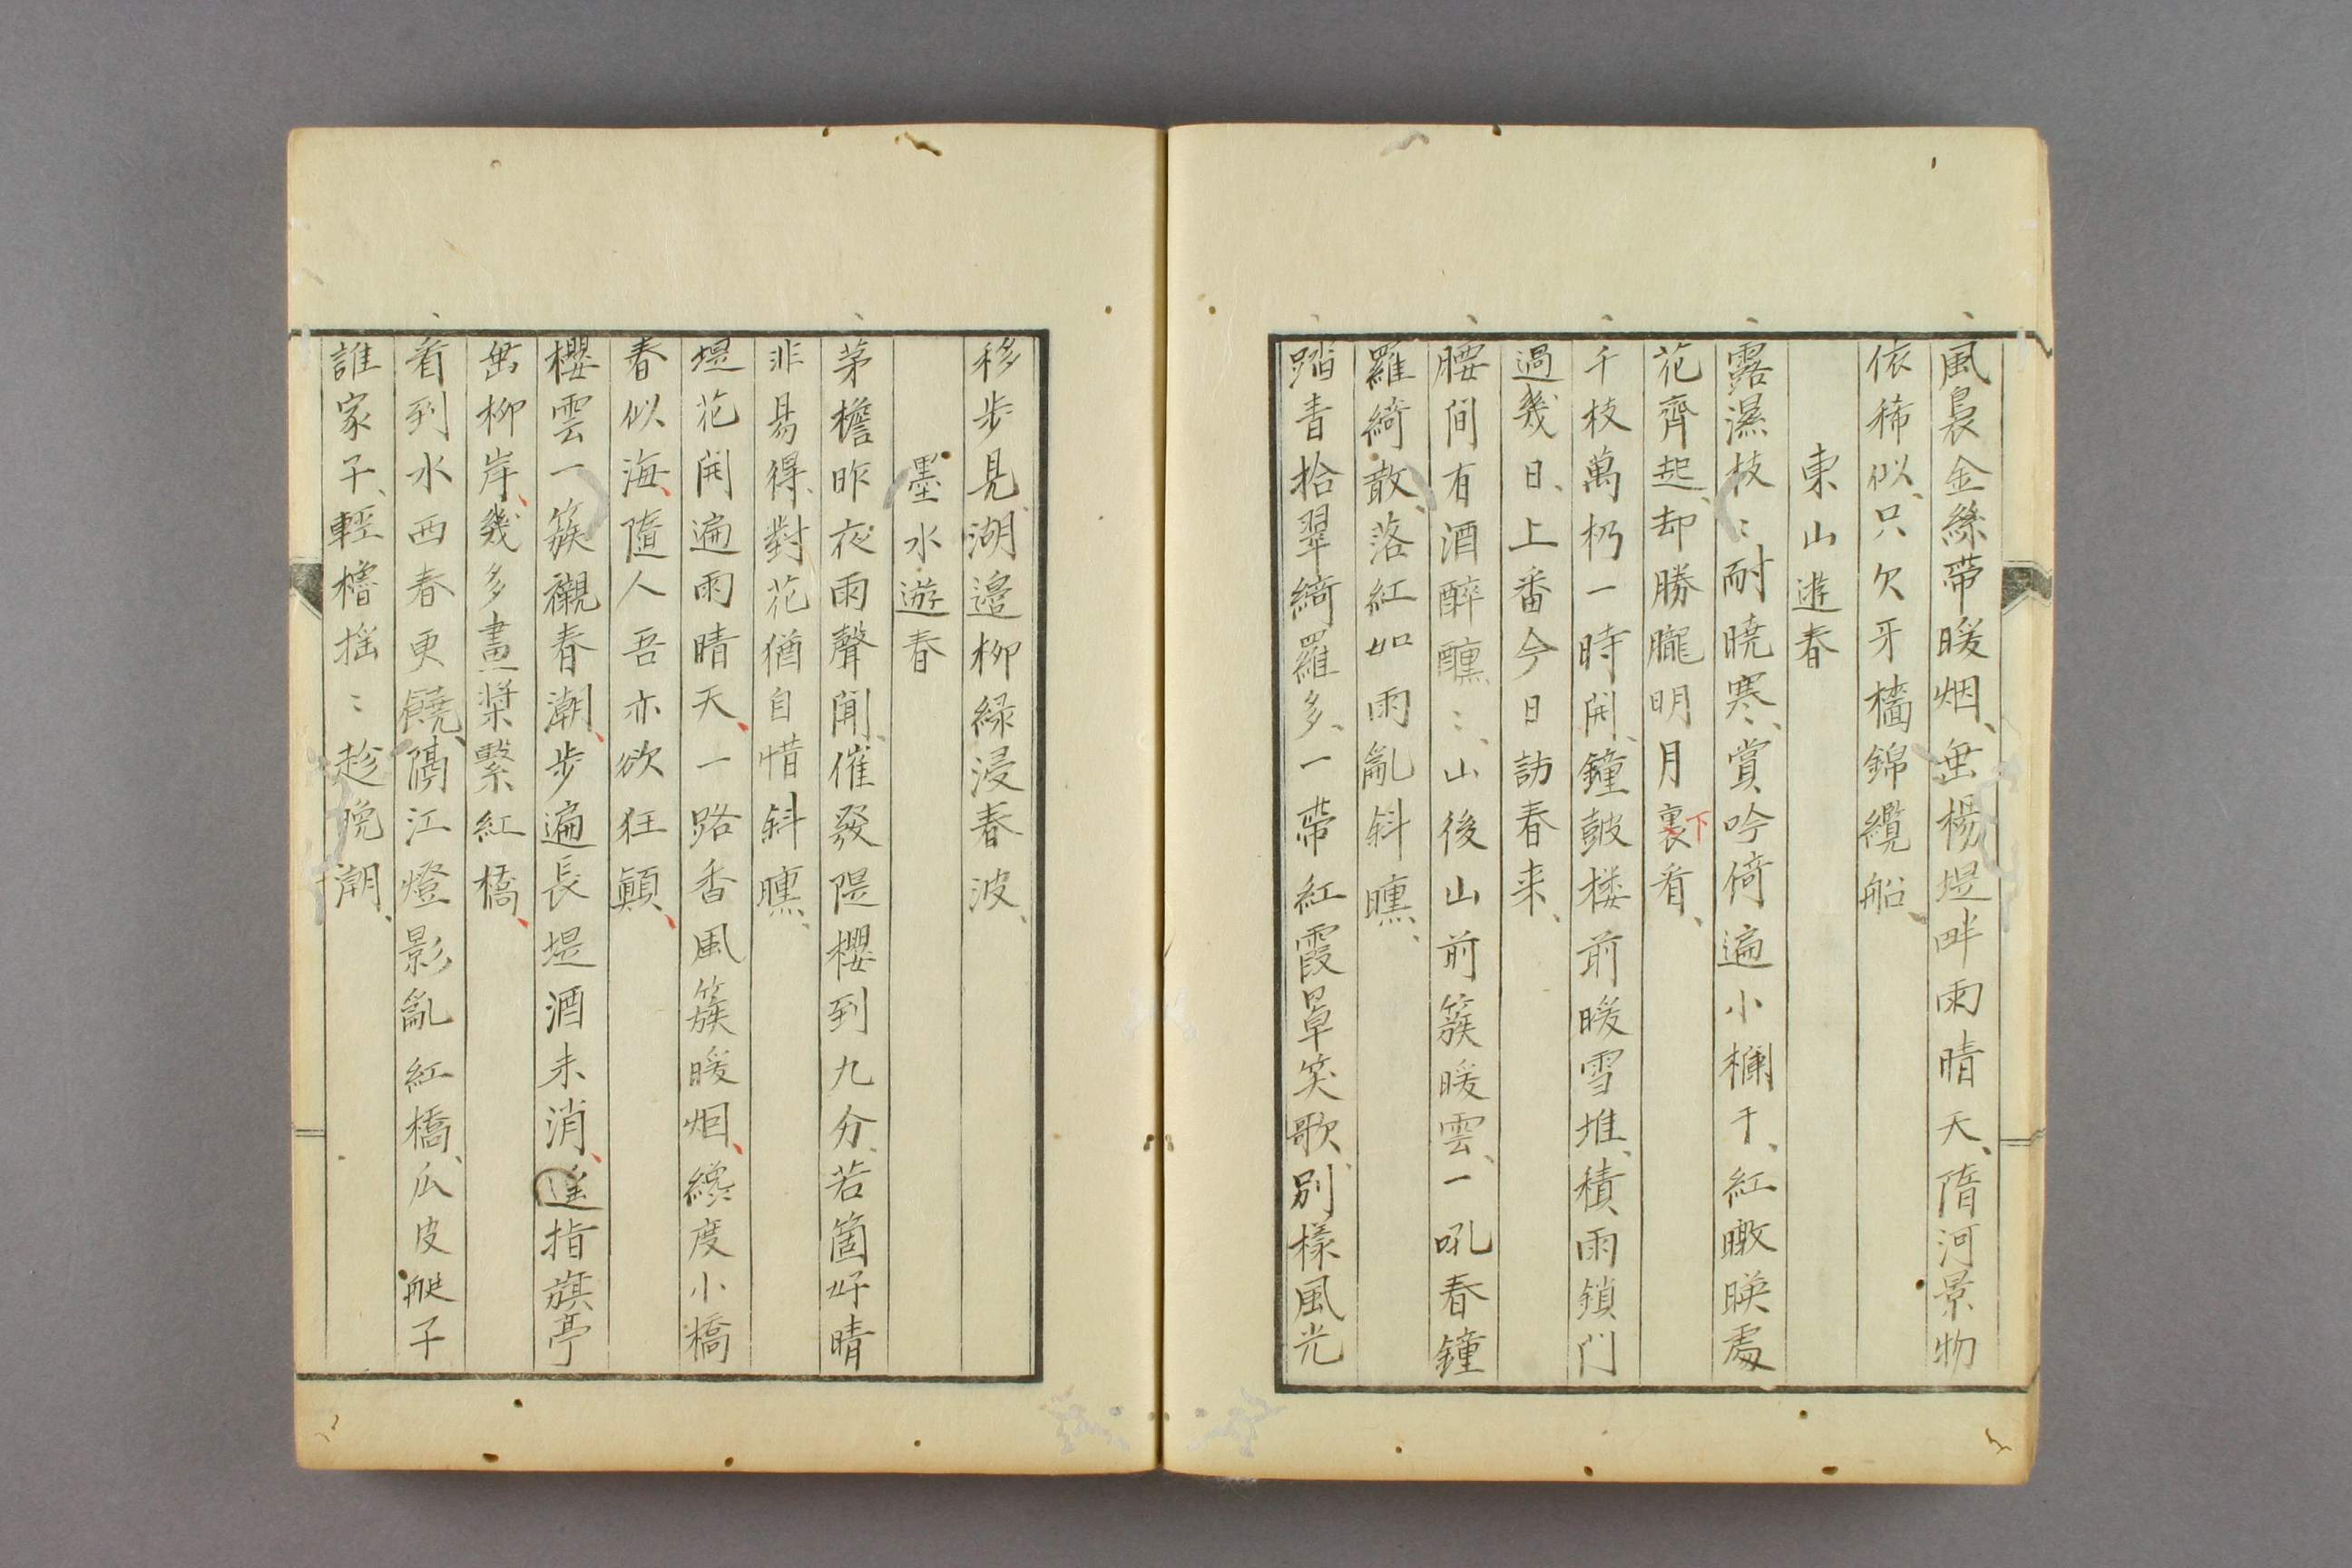 風裊金絲帶暖烟、垂楊堤畔雨晴天、隋河景物
依稀似、只欠牙檣錦纜船、
東山遊春
露濕枝〻耐曉寒、賞吟倚遍小欄干、紅暾映處
花齊起、却勝朧明月裏看、
下
千枝萬朶一時開、鐘皷楼前暖雪堆、積雨鎖门
過幾日、上番今日訪春来、
腰间有酒醉醺〻、山後山前簇暖雲、一吼春鐘
羅綺散、落紅如雨亂斜曛、
踏青拾翠綺羅多、一帶紅霞罩笑歌、別様風光
移步見、湖邉柳緑浸春波、
墨水遊春
茅檐昨夜雨聲聞、催發隄櫻到九分、若箇好晴
非易得、對花猶自惜斜曛、
堤花開遍雨晴天、一路香風簇暖烟、纔度小橋
春似海、隨人吾亦欲狂顛、
櫻雲一簇襯春潮、步遍長堤酒未消、遥指旗亭
垂柳岸、幾多畫槳繫紅橋、
看到水西春更饒、隔江燈影亂紅橋、瓜皮艇子
誰家子、輕櫓揺〻趁晚潮、